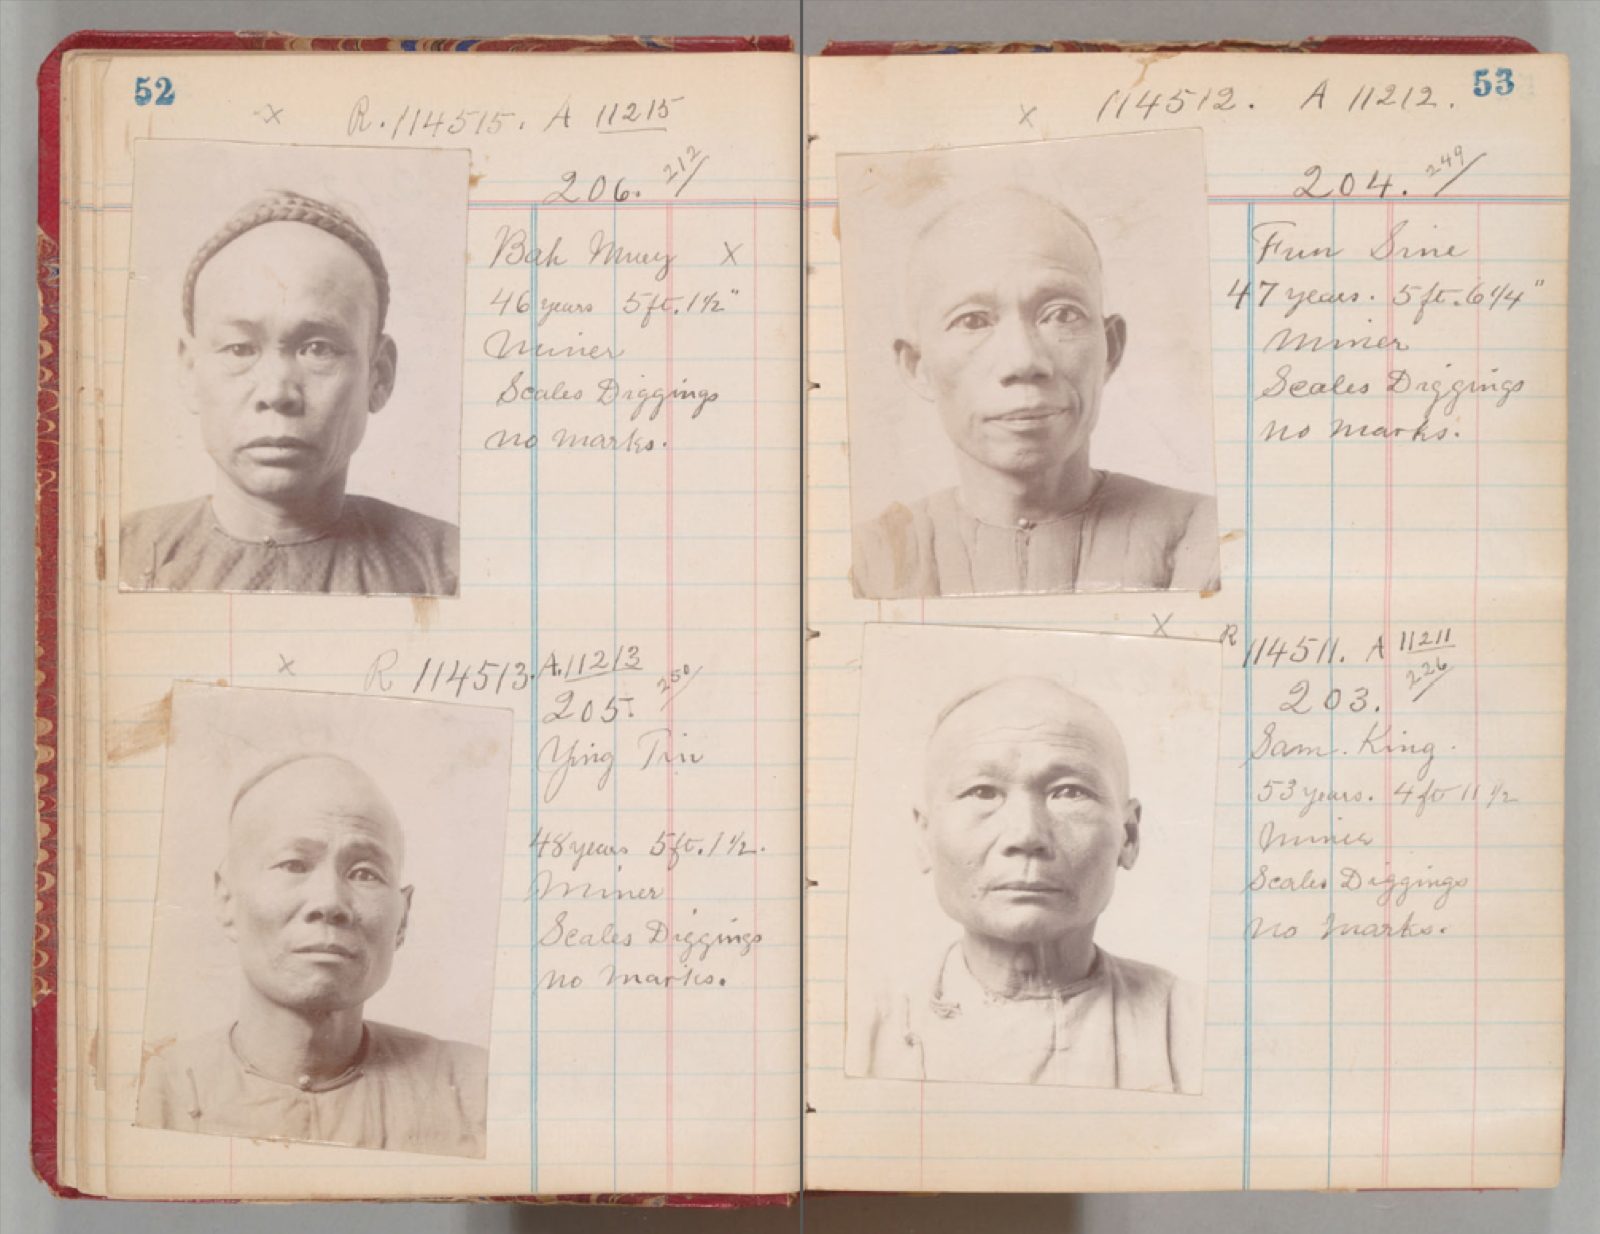 52
x R. 114515. A 11215
206. 212/
Bah Muey x
46 years 5 ft. 1 1/2"
Miner
Scales Diggings
no marks.
x R 114513. A. 11213
205. 250/
Ying Tin
48 years 5 ft. 1 1/2.
Miner
Scales Diggings
no marks.
53
x 114512. A 11212.
204. 249/
Fun Sine
47 years. 5 ft. 6 1/4"
Miner
Scales Diggings
no marks.
x R 114511. A 11211
203. 226/
Sam. King.
53 years. 4 ft 11 1/2
Miner
Scales Diggings
no marks.